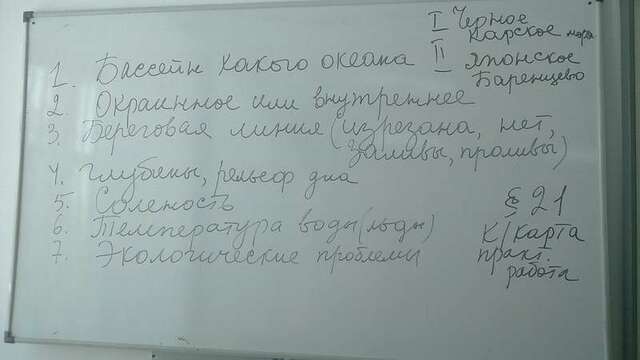 I Черное
Карское моря
II Японское
Баренцево
1. Бассейн какого океана
2. Окраинное или внутреннее
3. Береговая линия (изрезана, нет,
заливы, проливы)
4. Глубины, рельеф дна
5. Соленость
6. Температура воды (льды)
7. Экологические проблемы
§ 21
К/карта
практ.
работа